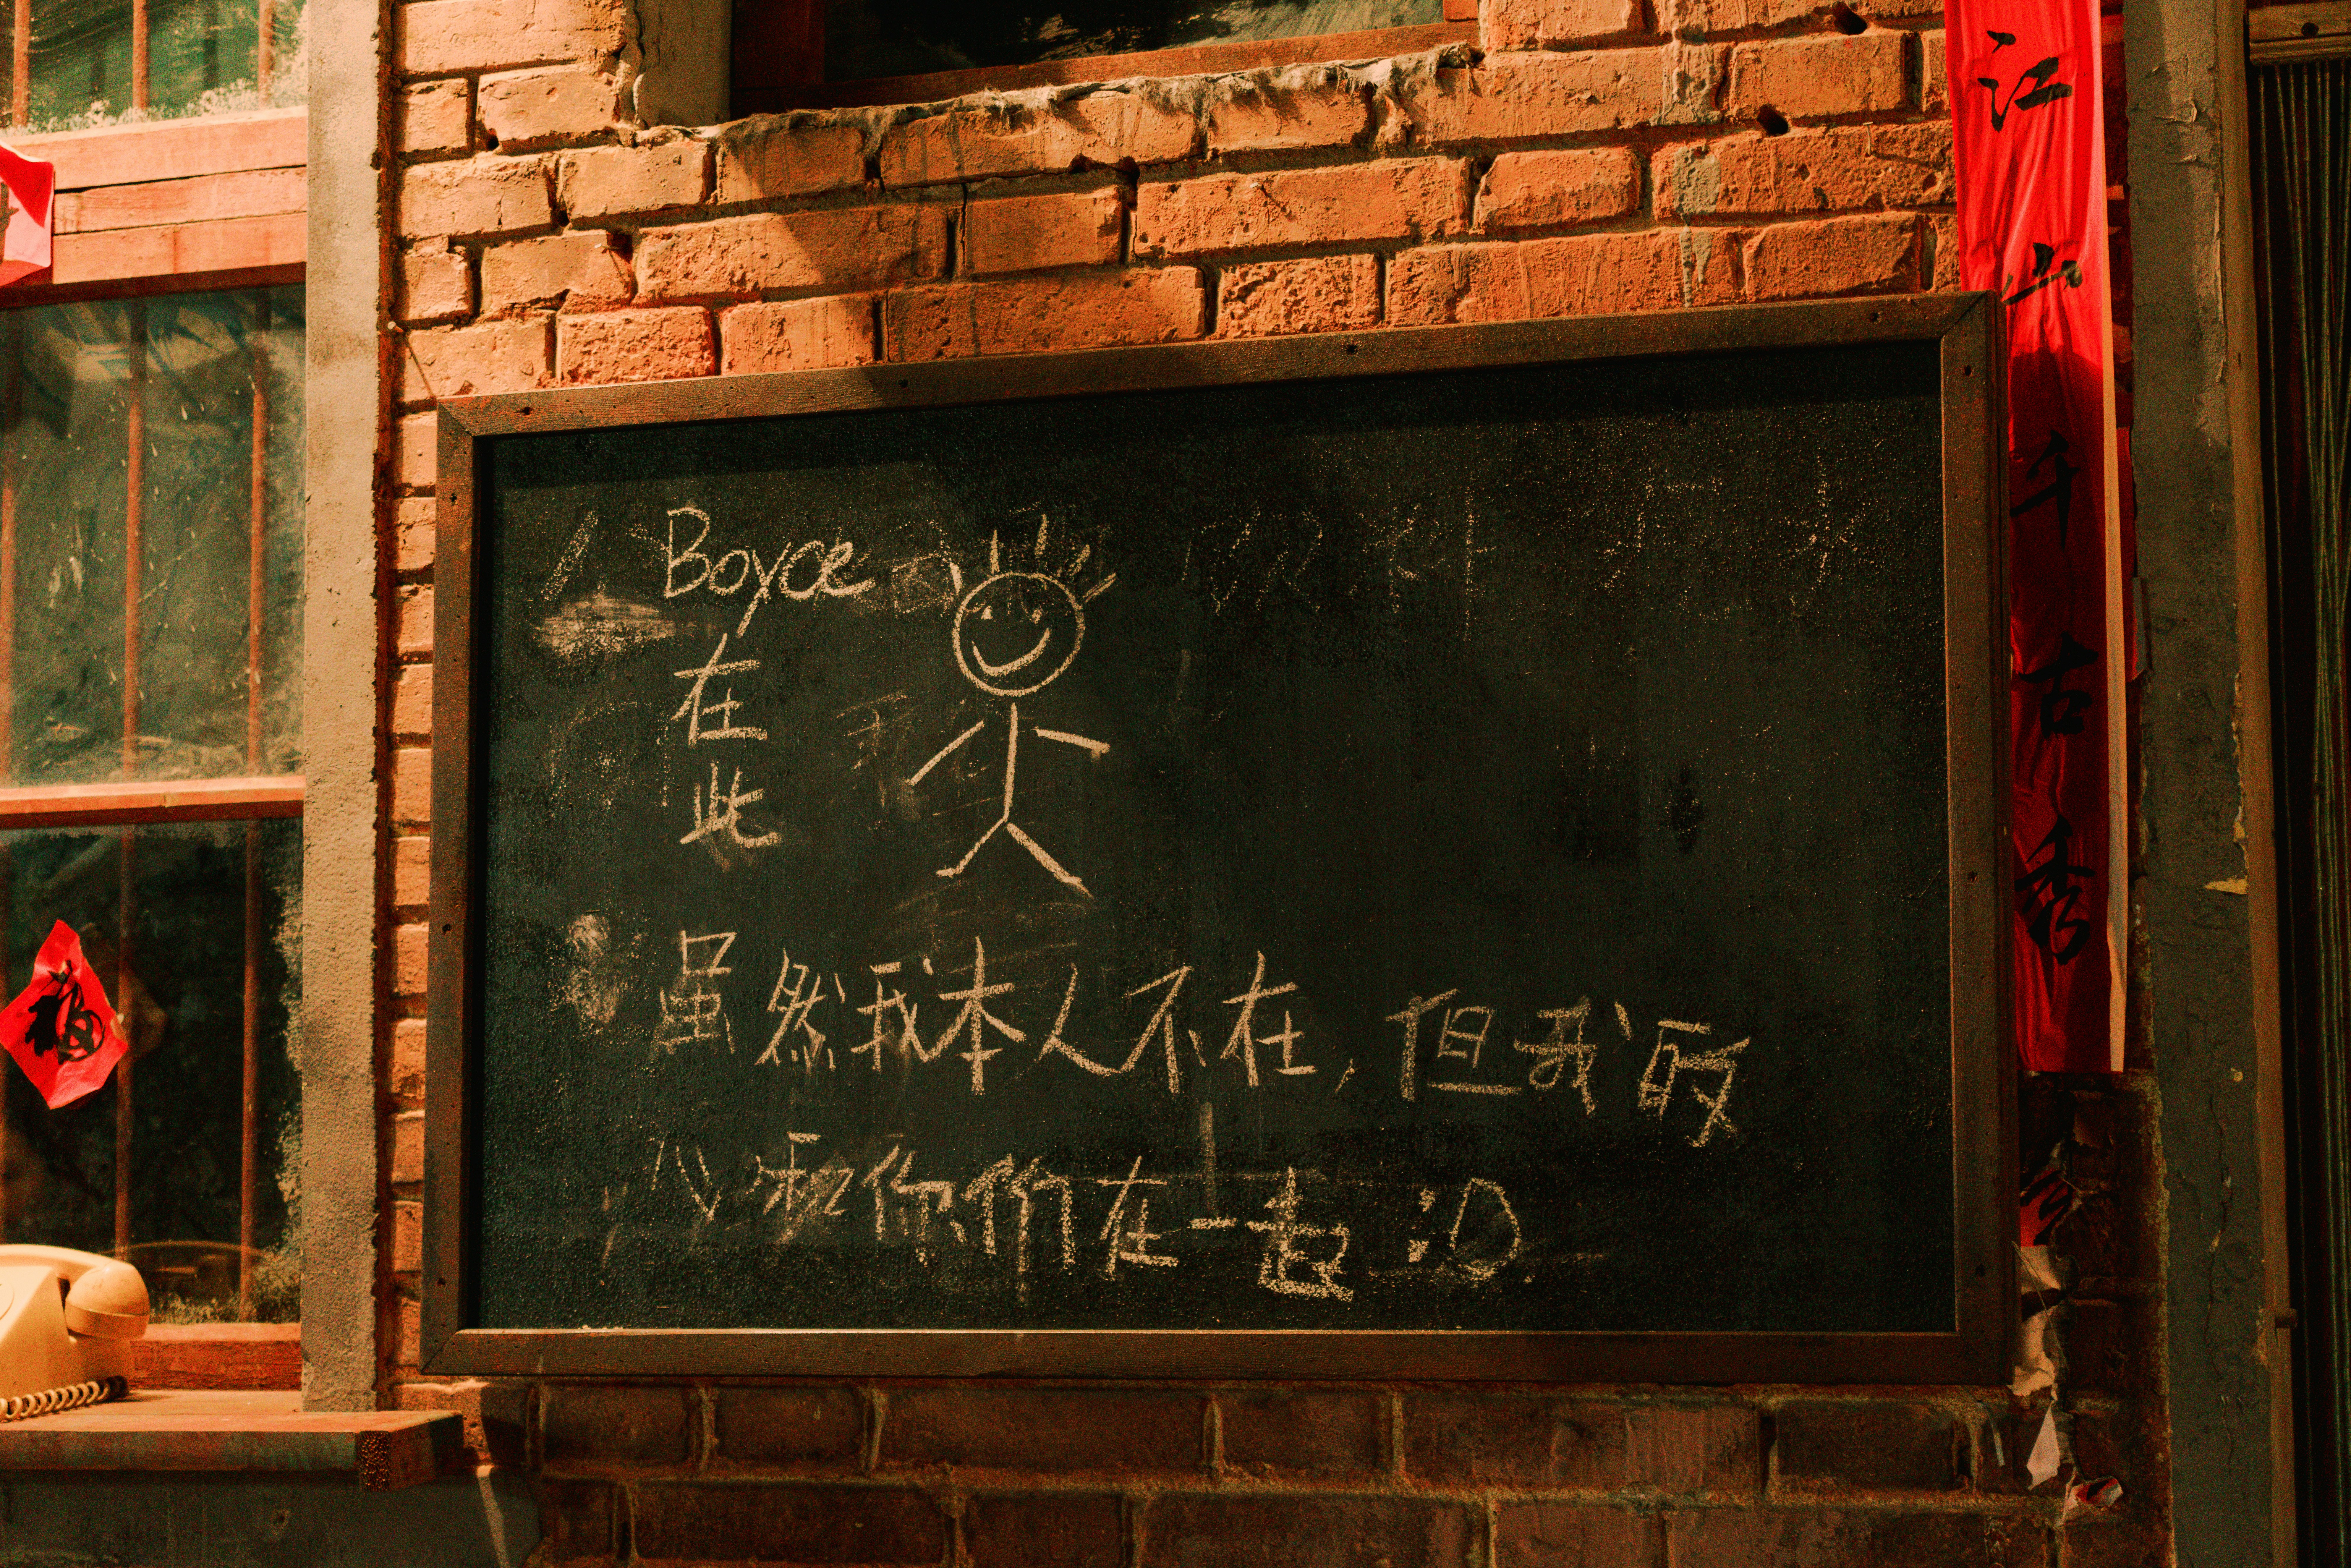 Boyce
在
此
虽然我本人不在,但我的
心和你们在一起 :D
江山千古秀
福